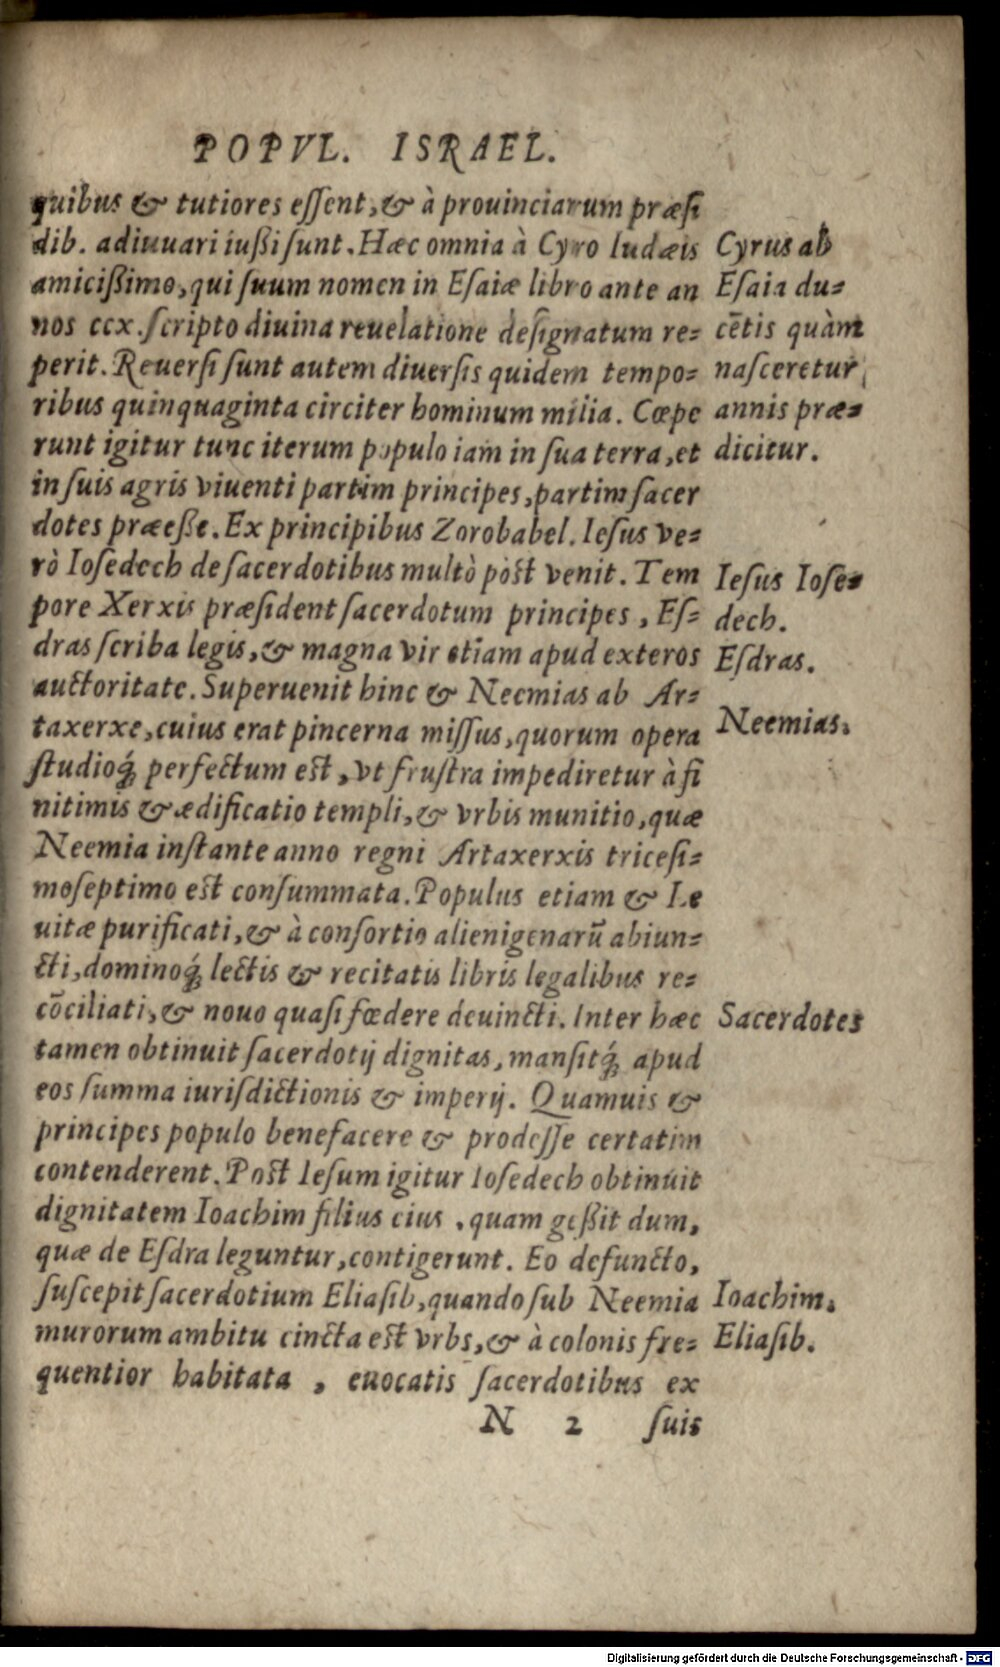 POPVL. ISRAEL.
quibus & tutiores eſſent, & à prouinciarum præſi
dib. adiuuari iußi ſunt. Hæc omnia à Cyro Iudæis
amicißimo, qui ſuum nomen in Eſaiæ libro ante an
nos ccx. ſcripto diuina reuelatione deſignatum re=
perit. Reuerſi ſunt autem diuerſis quidem tempo=
ribus quinquaginta circiter hominum milia. Cœpe
runt igitur tunc iterum populo iam in ſua terra, et
in ſuis agris viuenti partim principes, partim ſacer
dotes præeße. Ex principibus Zorobabel. Ieſus ve=
rò Ioſedech de ſacerdotibus multò pòst venit. Tem
pore Xerxis præſident ſacerdotum principes, Eſ=
dras ſcriba legis, & magna vir etiam apud exteros
auctoritate. Superuenit hinc & Neemias ab Ar=
taxerxe, cuius erat pincerna miſſus, quorum opera
ſtudioq́; perfectum est, vt fruſtra impediretur à fi
nitimis & ædificatio templi, & vrbis munitio, quæ
Neemia inſtante anno regni Artaxerxis triceſi=
moſeptimo est conſummata. Populus etiam & Le
uitæ purificati, & à conſortio alienigenarũ abiun=
cti, dominoq́; lectis & recitatis libris legalibus re=
cõciliati, & nouo quaſi fœdere deuincti. Inter hæc
tamen obtinuit ſacerdotij dignitas, manſitq́; apud
eos ſumma iuriſdictionis & imperij. Quamuis &
principes populo benefacere & prodeſſe certatim
contenderent. Post Ieſum igitur Ioſedech obtinuit
dignitatem Ioachim filius eius, quam geßit dum,
quæ de Eſdra leguntur, contigerunt. Eo defuncto,
ſuſcepit ſacerdotium Eliaſib, quando ſub Neemia
murorum ambitu cincta est vrbs, & à colonis fre=
quentior habitata, euocatis ſacerdotibus ex
N 2 ſuis
Cyrus ab
Eſaia du=
cẽtis quàm
naſceretur
annis præ=
dicitur.
Ieſus Ioſe=
dech.
Eſdras.
Neemias.
Sacerdotes
Ioachim.
Eliaſib.
Digitalisierung gefördert durch die Deutsche Forschungsgemeinschaft - DFG